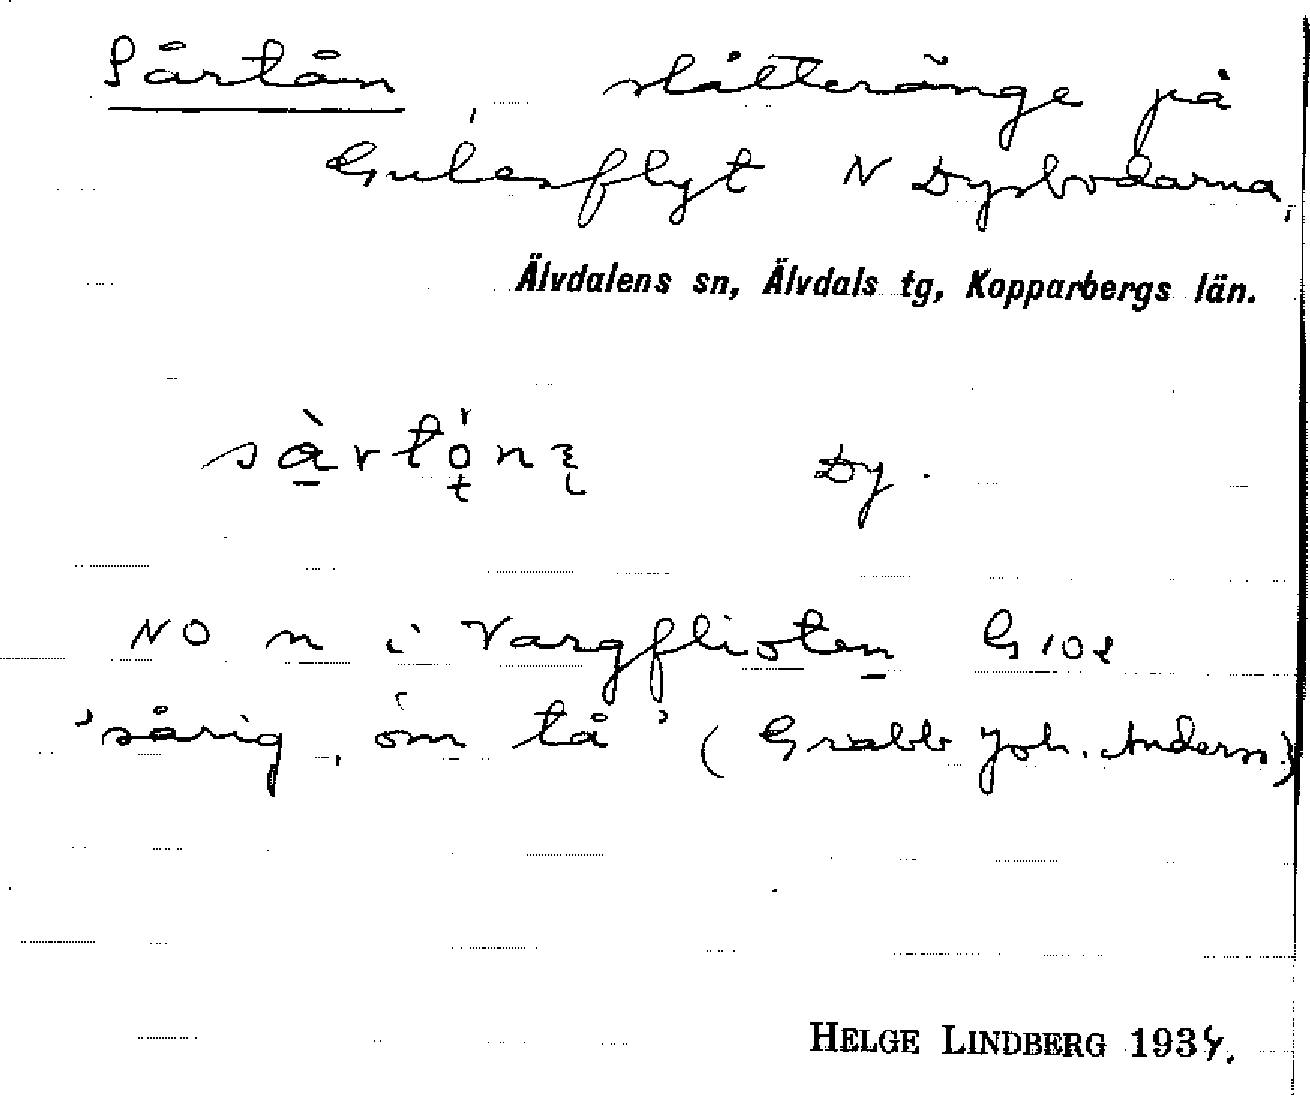 Sårtån slåtteränge på
Gulesflyt N Dysbodarna,
Älvdalens sn, Älvdals tg, Kopparbergs län.
Dy.
NO n i Vargflioten G 10e
'sårig, om tå' (Grabb Joh. Anders.)
HELGE LINDBERG 1934.